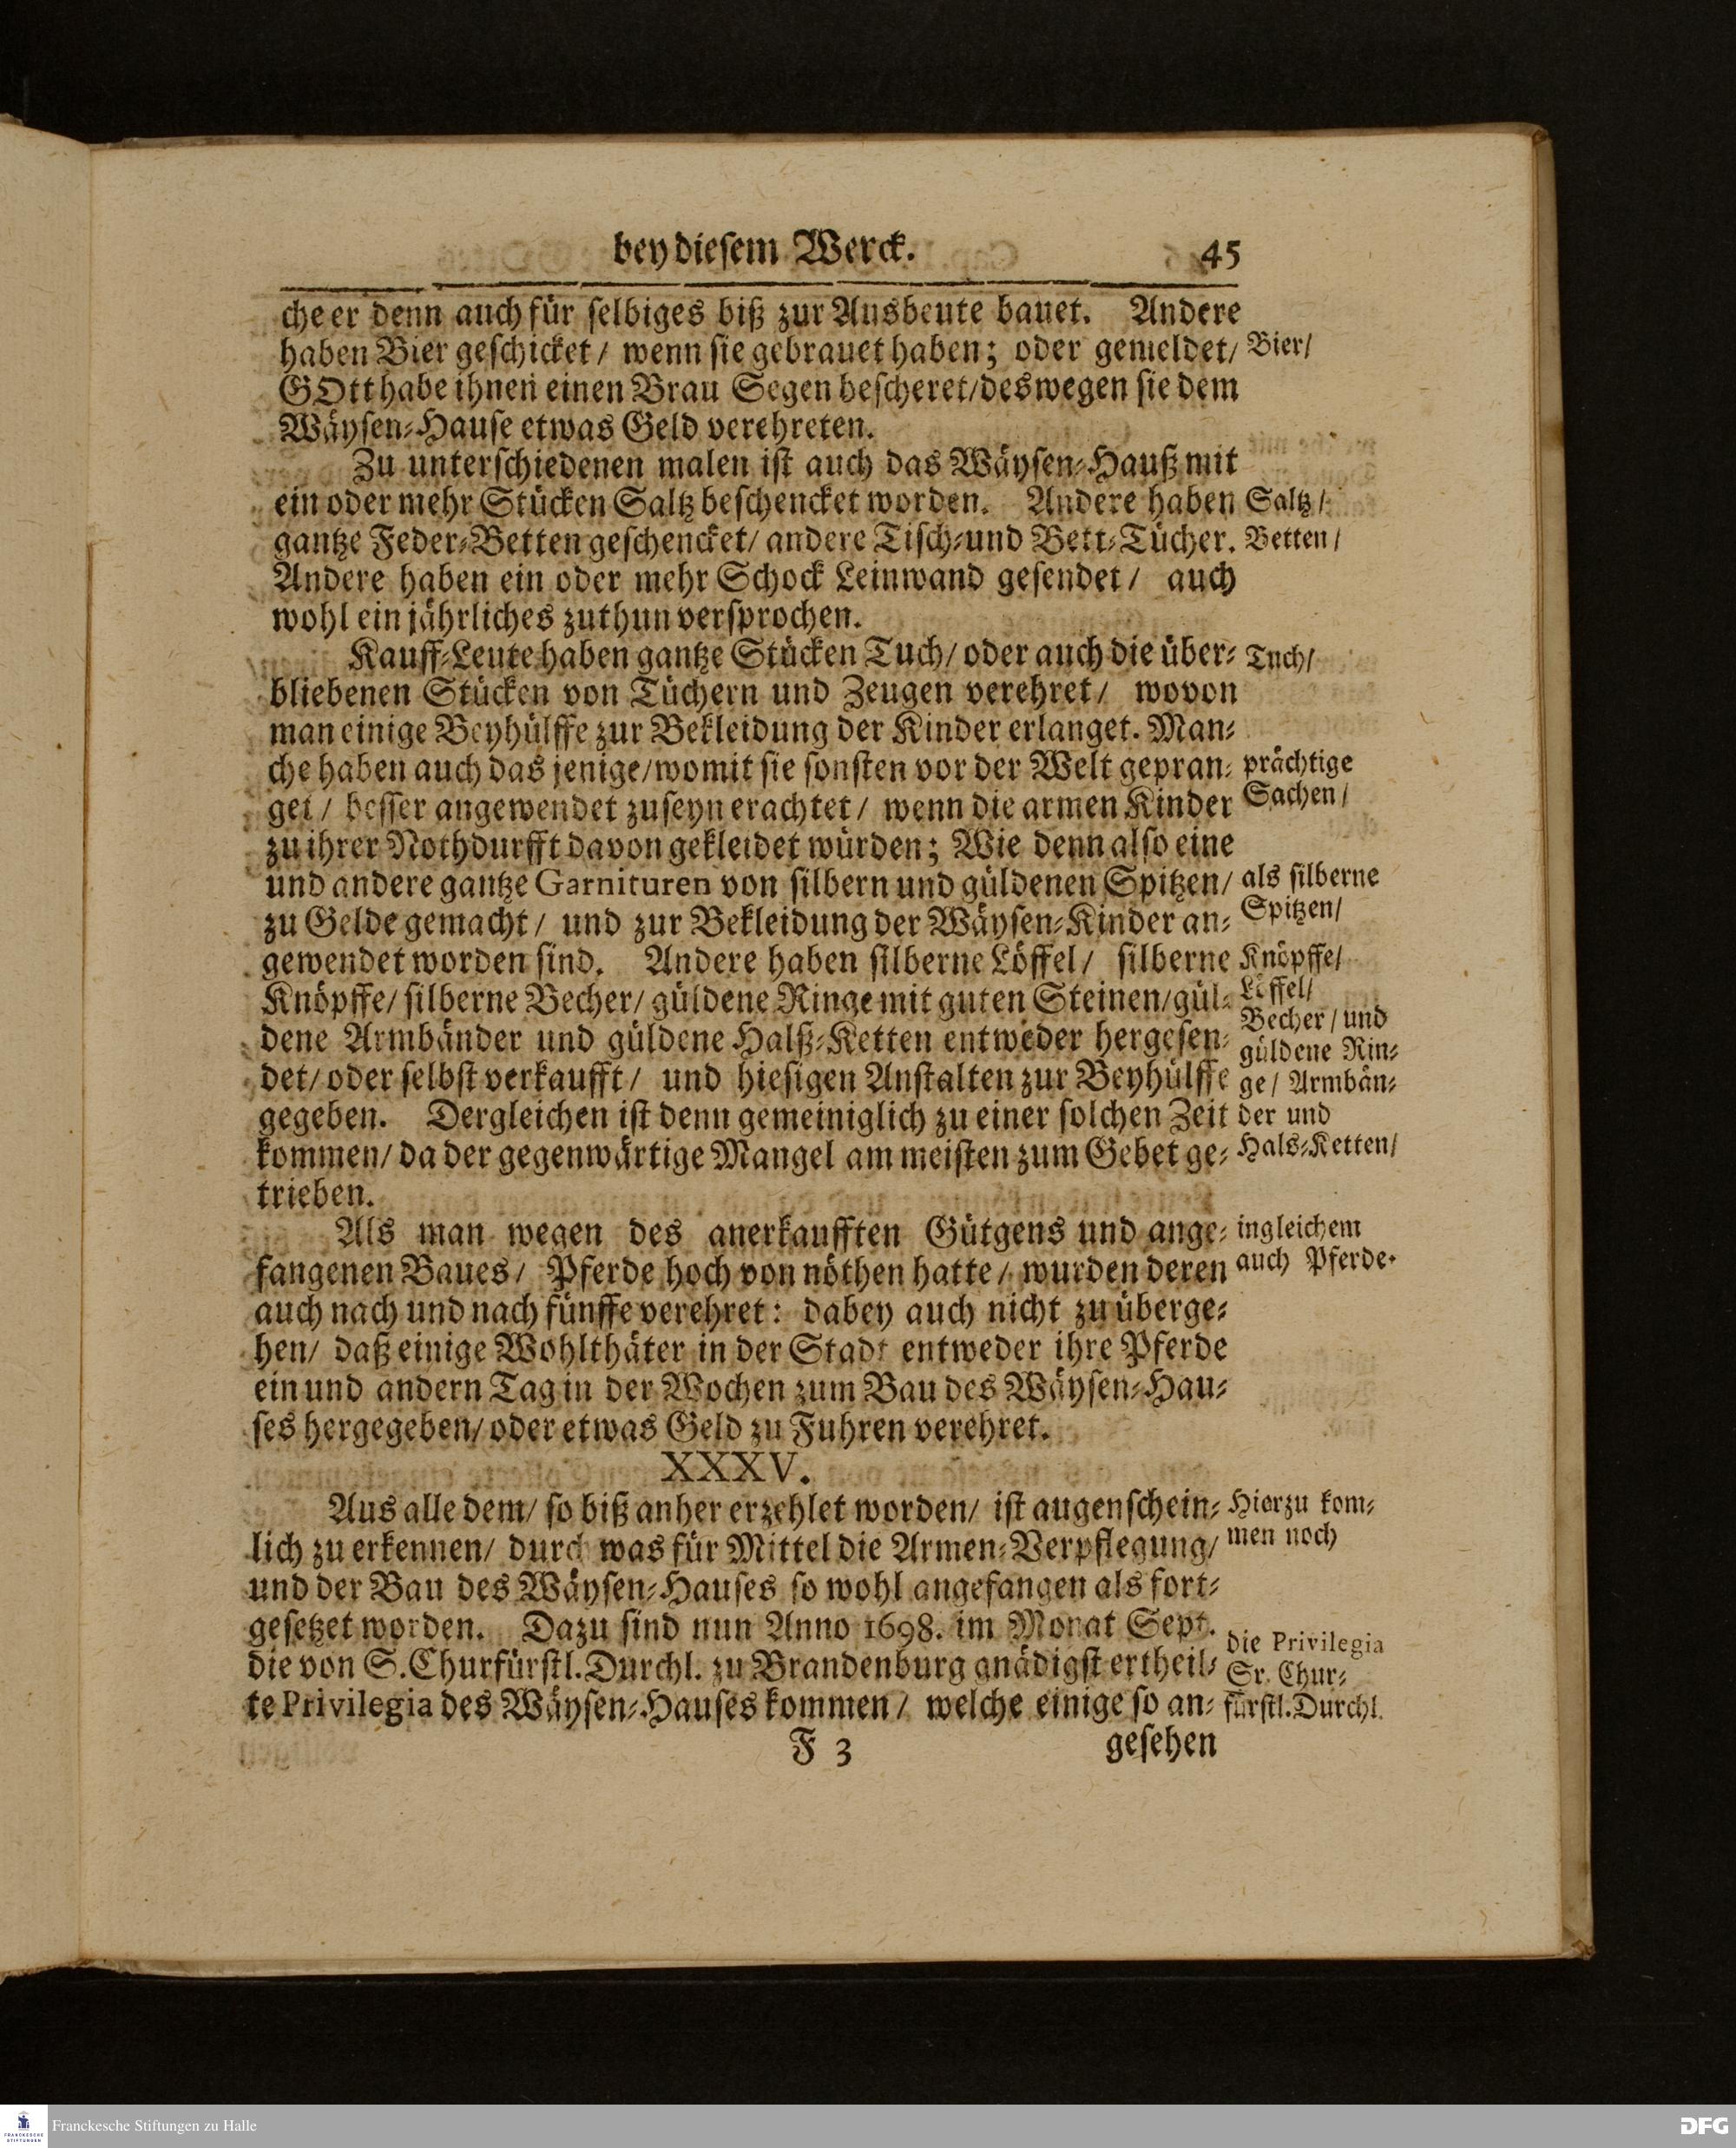 bey diesem Werck. 45
che er denn auch für selbiges biß zur Ausbeute bauet. Andere
haben Bier geschicket / wenn sie gebrauet haben; oder gemeldet/
Bier/
GOtt habe ihnen einen Brau Segen bescheret/deswegen sie dem
Wäysen-Hause etwas Geld verehreten.
Zu unterschiedenen malen ist auch das Wäysen-Hauß mit
ein oder mehr Stücken Saltz beschencket worden. Andere haben
Saltz /
gantze Feder-Betten geschencket/ andere Tisch-und Bett-Tücher.
Betten /
Andere haben ein oder mehr Schock Leinwand gesendet / auch
wohl ein jährliches zuthun versprochen.
Kauff-Leute haben gantze Stücken Tuch/ oder auch die über-
Tuch/
bliebenen Stücken von Tüchern und Zeugen verehret / wovon
man einige Beyhülffe zur Bekleidung der Kinder erlanget. Man-
che haben auch das jenige/womit sie sonsten vor der Welt gepran-
prächtige
get / besser angewendet zuseyn erachtet / wenn die armen Kinder
Sachen /
zu ihrer Nothdurfft davon gekleidet würden; Wie denn also eine
und andere gantze Garnituren von silbern und güldenen Spitzen/
als silberne
zu Gelde gemacht / und zur Bekleidung der Wäysen-Kinder an-
Spitzen/
gewendet worden sind. Andere haben silberne Löffel / silberne
Knöpffe/
Knöpffe/ silberne Becher/ güldene Ringe mit guten Steinen/gül-
Löffel/
dene Armbänder und güldene Halß-Ketten entweder hergesen-
Becher / und
güldene Rin-
det/ oder selbst verkaufft / und hiesigen Anstalten zur Beyhülffe
ge / Armbän-
gegeben. Dergleichen ist denn gemeiniglich zu einer solchen Zeit
der und
kommen/ da der gegenwärtige Mangel am meisten zum Gebet ge-
Hals-Ketten/
trieben.
Als man wegen des anerkaufften Gütgens und ange-
ingleichem
fangenen Baues / Pferde hoch von nöthen hatte / wurden deren
auch Pferde.
auch nach und nach fünffe verehret: dabey auch nicht zu überge-
hen/ daß einige Wohlthäter in der Stadt entweder ihre Pferde
ein und andern Tag in der Wochen zum Bau des Wäysen-Hau-
ses hergegeben/ oder etwas Geld zu Fuhren verehret.
XXXV.
Aus alle dem/ so biß anher erzehlet worden/ ist augenschein-
Hierzu kom-
lich zu erkennen/ durch was für Mittel die Armen-Verpflegung/
men noch
und der Bau des Wäysen-Hauses so wohl angefangen als fort-
gesetzet worden. Dazu sind nun Anno 1698. im Monat Sept.
die Privilegia
die von S. Churfürstl. Durchl. zu Brandenburg gnädigst ertheil-
Sr. Chur-
te Privilegia des Wäysen-Hauses kommen / welche einige so an-
fürstl. Durchl.
F 3 gesehen
Franckesche Stiftungen zu Halle
FRANCKESCHE STIFTUNGEN
DFG